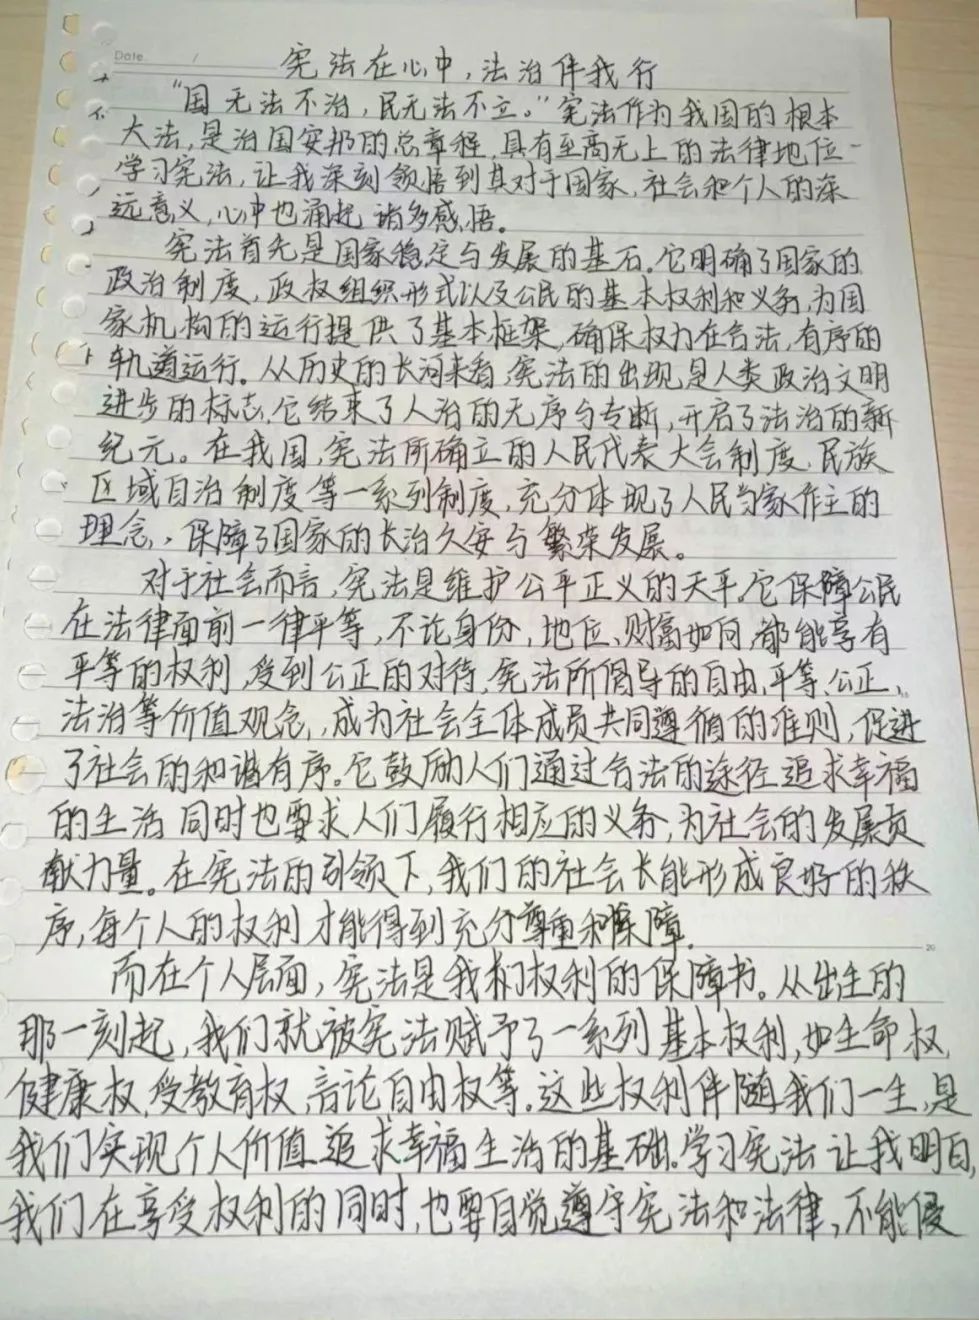 Date /
宪法在心中，法治伴我行
"国无法不治，民无法不立。"宪法作为我国的根本
大法，是治国安邦的总章程，具有至高无上的法律地位。
学习宪法，让我深刻领悟到其对于国家、社会和个人的深
远意义，心中也涌起诸多感悟。
宪法首先是国家稳定与发展的基石。它明确了国家的
政治制度，政权组织形式以及公民的基本权利和义务，为国
家机构的运行提供了基本框架，确保权力在合法，有序的
轨道运行。从历史的长河来看，宪法的出现是人类政治文明
进步的标志，它结束了人治的无序与专断，开启了法治的新
纪元。在我国，宪法所确立的人民代表大会制度，民族
区域自治制度等一系列制度，充分体现了人民当家作主的
理念，保障了国家的长治久安与繁荣发展。
对于社会而言，宪法是维护公平正义的天平。它保障公民
在法律面前一律平等，不论身份，地位、财富如何，都能享有
平等的权利，受到公正的对待，宪法所倡导的自由、平等、公正、
法治等价值观念，成为社会全体成员共同遵循的准则，促进
了社会的和谐有序。它鼓励人们通过合法的途径追求幸福
的生活 同时也要求人们履行相应的义务，为社会的发展贡
献力量。在宪法的引领下，我们的社会长能形成良好的秩
序，每个人的权利才能得到充分尊重和保障。
20
而在个人层面，宪法是我们权利的保障书。从出生的
那一刻起，我们就被宪法赋予了一系列基本权利，如生命权，
健康权，受教育权，言论自由权等。这些权利伴随我们一生，是
我们实现个人价值 追求幸福生活的基础。学习宪法让我明白，
我们在享受权利的同时，也要自觉遵守宪法和法律，不能侵